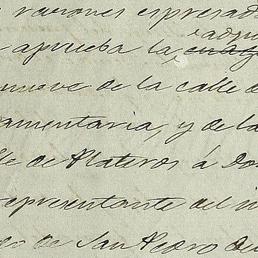 razones espresad
aprueba la, adqu
nueve de la calle d
amentaria, y de la
lle de Plateros á Don
representante del in
de San Pedro de